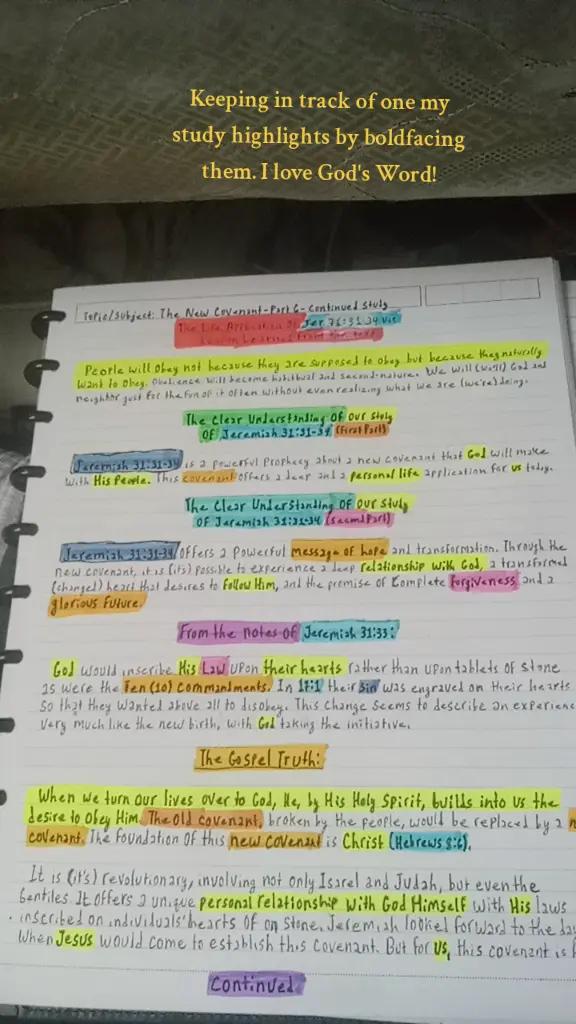 Keeping in track of one my
study highlights by boldfacing
them. I love God's Word!
Topic/Subject: The New Covenant-Part 6-Continued Study
The Life Application Of Jer
People will obey not because they are supposed to obey but because they naturally
want to obey. Obedience will become habitual and second-nature. We will (we'll) God and
neighbor just for the fun of it often without even realizing what we are (we're) doing.
The Clear Understanding Of our study
Of Jeremiah 31:31-34 (First Part)
Jeremiah 31:31-34 is a powerful prophecy about a new covenant that God will make
with His People. This covenant offers a deep and a personal life application for us today.
The Clear Understanding Of our study
Of Jeremiah 31:31-34 (second Part)
Jeremiah 31:31-34 offers a powerful message of hope and transformation. Through the
new covenant, it is (it's) possible to experience a deep relationship with God, a transformed
(changed) heart that desires to follow Him, and the promise of complete forgiveness and a
glorious future.
From the notes of Jeremiah 31:33:
God would inscribe His Law upon their hearts rather than upon tablets of stone
as were the Ten (10) commandments. In 17:1 their sin was engraved on their hearts
so that they wanted above all to disobey. This change seems to describe an experience
very much like the new birth, with God taking the initiative.
The Gospel Truth:
When we turn our lives over to God, He, by His Holy Spirit, builds into us the
desire to obey Him. The Old covenant, broken by the people, would be replaced by a n
covenant. The foundation of this new covenant is Christ (Hebrews 8:6).
It is (it's) revolutionary, involving not only Isarel and Judah, but even the
Gentiles. It offers a unique personal relationship with God Himself with His laws
inscribed on individuals' hearts of on stone. Jeremiah looked forward to the day
when Jesus would come to establish this covenant. But for us, this covenant is
Continued